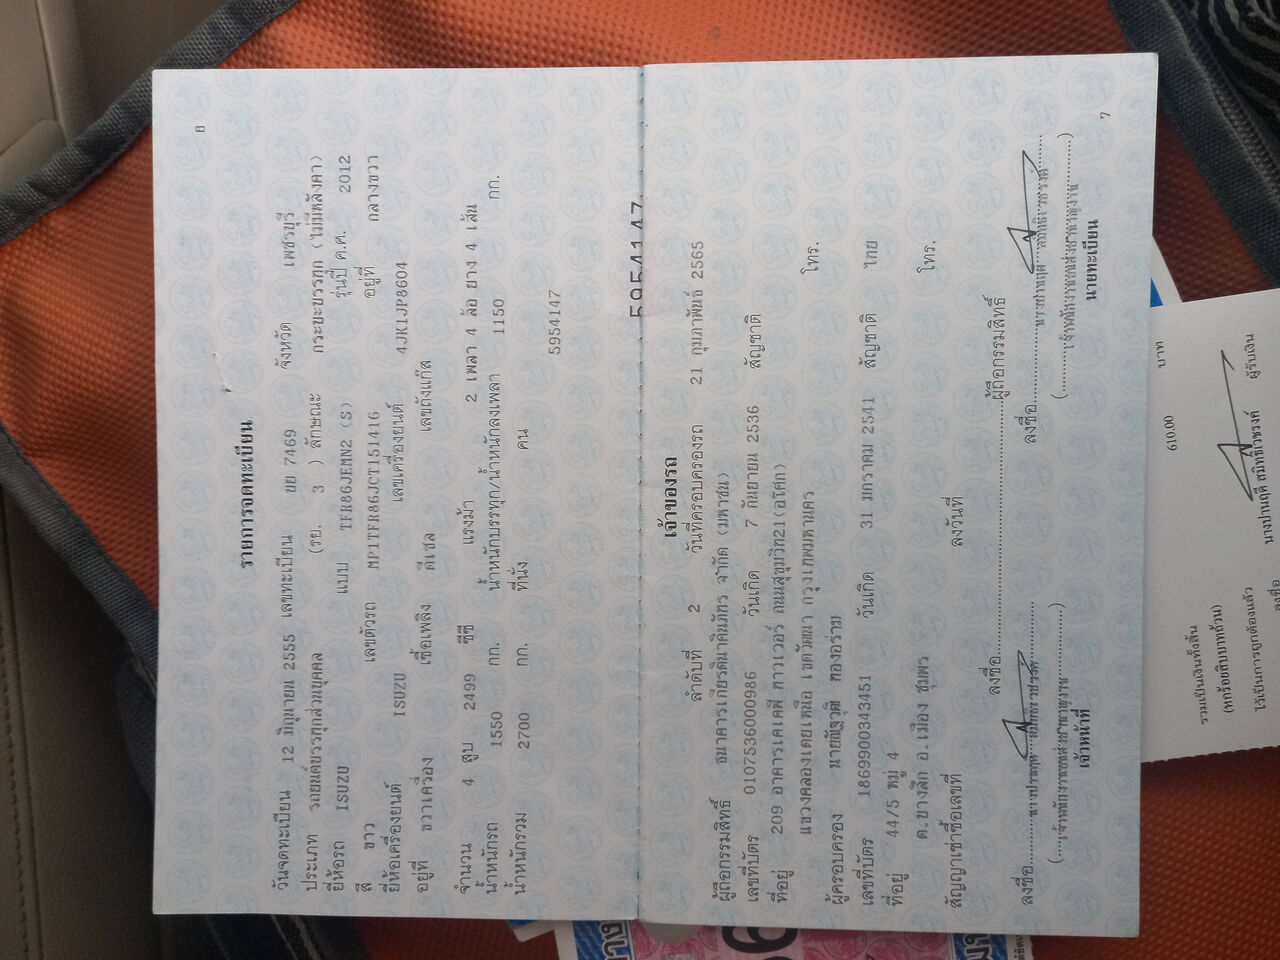 6
รายการจดทะเบียน
วันจดทะเบียน 12 มิถุนายน 2555 เลขทะเบียน ยย 7469 จังหวัด เพชรบุรี
ประเภท รถยนต์บรรทุกส่วนบุคคล (รย. 3 ) ลักษณะ กระบะบรรทุก (ไม่มีหลังคา)
ยี่ห้อรถ ISUZU แบบ TFR86JEMN2 (S) รุ่นปี ค.ศ. 2012
สี ขาว เลขตัวรถ MP1TFR86JCT151416 อยู่ที่ กลางขวา
ยี่ห้อเครื่องยนต์ ISUZU เลขเครื่องยนต์ 4JK1JP8604
อยู่ที่ ขวาเครื่อง เชื้อเพลิง ดีเซล เลขถังแก๊ส
จำนวน 4 สูบ 2499 ซีซี แรงม้า 2 เพลา 4 ล้อ ยาง 4 เส้น
น้ำหนักรถ 1550 กก. น้ำหนักบรรทุก/น้ำหนักลงเพลา 1150 กก.
น้ำหนักรวม 2700 กก. ที่นั่ง คน
5954147
5954147
เจ้าของรถ
ลำดับที่ 2 วันที่ครอบครองรถ 21 กุมภาพันธ์ 2565
ผู้ถือกรรมสิทธิ์ ธนาคารเกียรตินาคินภัทร จำกัด (มหาชน)
เลขที่บัตร 0107536000986 วันเกิด 7 กันยายน 2536 สัญชาติ
ที่อยู่ 209 อาคารเคเคพี ทาวเวอร์ ถนนสุขุมวิท21(อโศก)
แขวงคลองเตยเหนือ เขตวัฒนา กรุงเทพมหานคร โทร.
ผู้ครอบครอง ทองอร่าม
เลขที่บัตร 1869900343451 วันเกิด 31 มกราคม 2541 สัญชาติ ไทย
ที่อยู่ 44/5 หมู่ 4
ต.บางลึก อ.เมือง ชุมพร โทร.
สัญญาเช่าซื้อเลขที่ ลงวันที่
ลงชื่อ ผู้ถือกรรมสิทธิ์
ลงชื่อ ลงชื่อ
เจ้าหน้าที่ นายทะเบียน
7
610.00 บาท
รวมเป็นเงินทั้งสิ้น
(หกร้อยสิบบาทถ้วน)
ไว้เป็นการถูกต้องแล้ว
ลงชื่อ ผู้รับเงิน